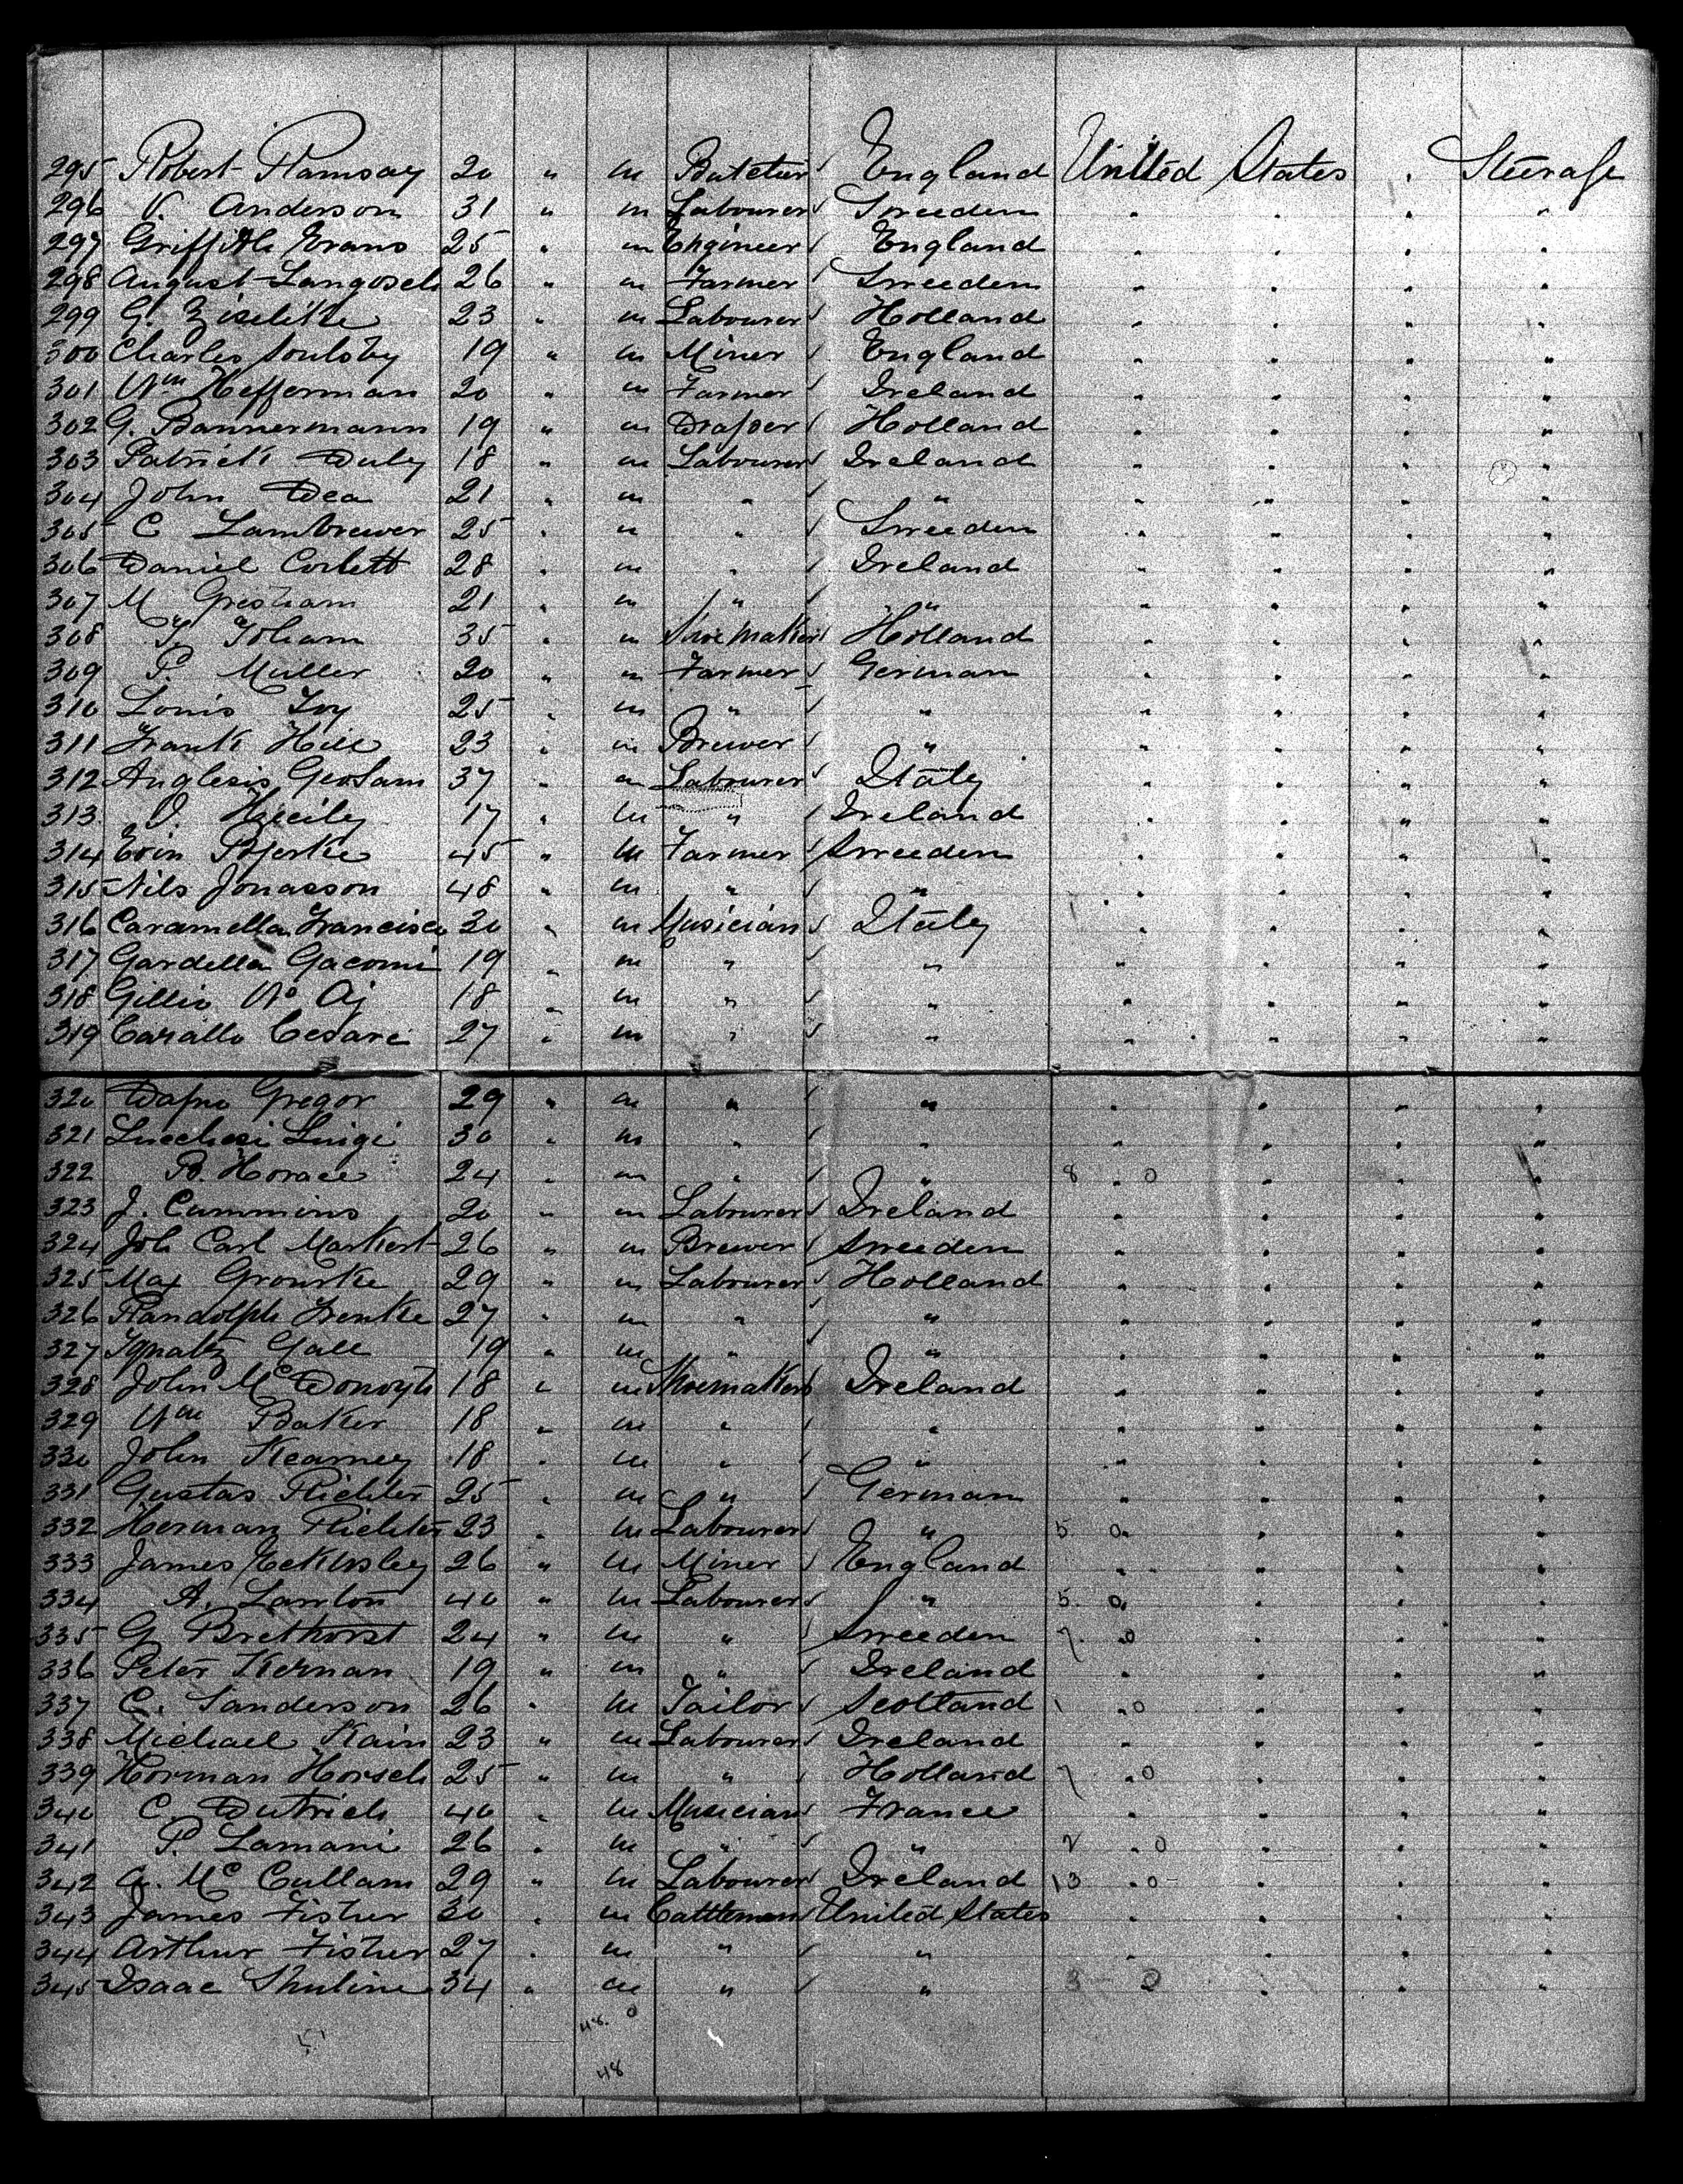 295 Robert Ramsay 20 " m Butcher England United States . Steerage
296 V. Anderson 31 " m Labourer Sweeden " " " "
297 Griffith Evans 25 " m Engineer England " " " "
298 August Langosch 26 " m Farmer Sweeden " " " "
299 G. 23 " m Labourer Holland " " " "
300 Charles Soulsby 19 " m Miner England " " " "
301 Wm Hefferman 20 " m Farmer Ireland " " " "
302 G. Bannermann 19 " m Draper Holland " " " "
303 Patrick Duly 18 " m Labourer Ireland " " " "
304 John Dea 21 " m " " " " " "
305 C Lambrewer 25 " m " Sweeden " " " "
306 Daniel Corbett 28 " m " Ireland " " " "
307 M Gresham 21 " m " " " " " "
308 35 " m Shoemaker Holland " " " "
309 P. Muller 20 " m Farmer German " " " "
310 Louis 25 " m " " " " " "
311 Frank Hill 23 " m Brewer " " " " "
312 Anglesis 37 " m Labourer Italy " " " "
313 17 " m " Ireland " " " "
314 Bjerke 45 " m Farmer Sweeden " " " "
315 Nils Jonasson 48 " m " " " " " "
316 Caramella Francisco 30 " m Musician Italy " " " "
317 Gardella Gacomi 19 " m " " " " " "
318 Gillio 18 " m " " " " " "
319 Carallo Cesare 27 " m " " " " " "
320 Gregor 29 " m " " " " " "
321 Lucchesi Luigi 30 " m " " " " " "
322 B. Horace 24 " m " " 8 . 0 " " "
323 J. Cummins 20 " m Labourer Ireland " " " "
324 Joh Carl Markert 26 " m Brewer Sweeden " " " "
325 Max Grourke 29 " m Labourer Holland " " " "
326 Randolph Frenke 27 " m " " " " " "
327 Ignatz Gall 19 " m " " " " " "
328 John 18 " m Shoemaker Ireland " " " "
329 Wm Baker 18 " m " " " " " "
330 John Kearney 18 " m " " " " " "
331 Gustas Richter 25 " m " German " " " "
332 Herman Richter 23 " m Labourer " 5 0 " " "
333 James Eckersley 26 " m Miner England " " " "
334 A. Lawton 40 " m Labourer " 5. 0 " " "
335 G Brethorst 24 " m " Sweeden 7. 0 " " "
336 Peter Kernan 19 " m " Ireland " " " "
337 C. Sanderson 26 " m Tailor Scotland 1 . 0 " " "
338 Michael Kain 23 " m Labourer Ireland " " " "
339 Horman Horsch 25 " m " Holland 7 . 0 " " "
340 C. Dutrich 40 " m Musician France " " " "
341 P. Lamani 26 " m " " 2 . 0 " " "
342 A. McCullam 29 " m Labourer Ireland 13 . 0 " " "
343 James Fisher 30 " m Cattleman United States " " " "
344 Arthur Fisher 27 " m " " " " " "
345 Isaac 34 " m " " 3 - 0 " " "
48. 0
48